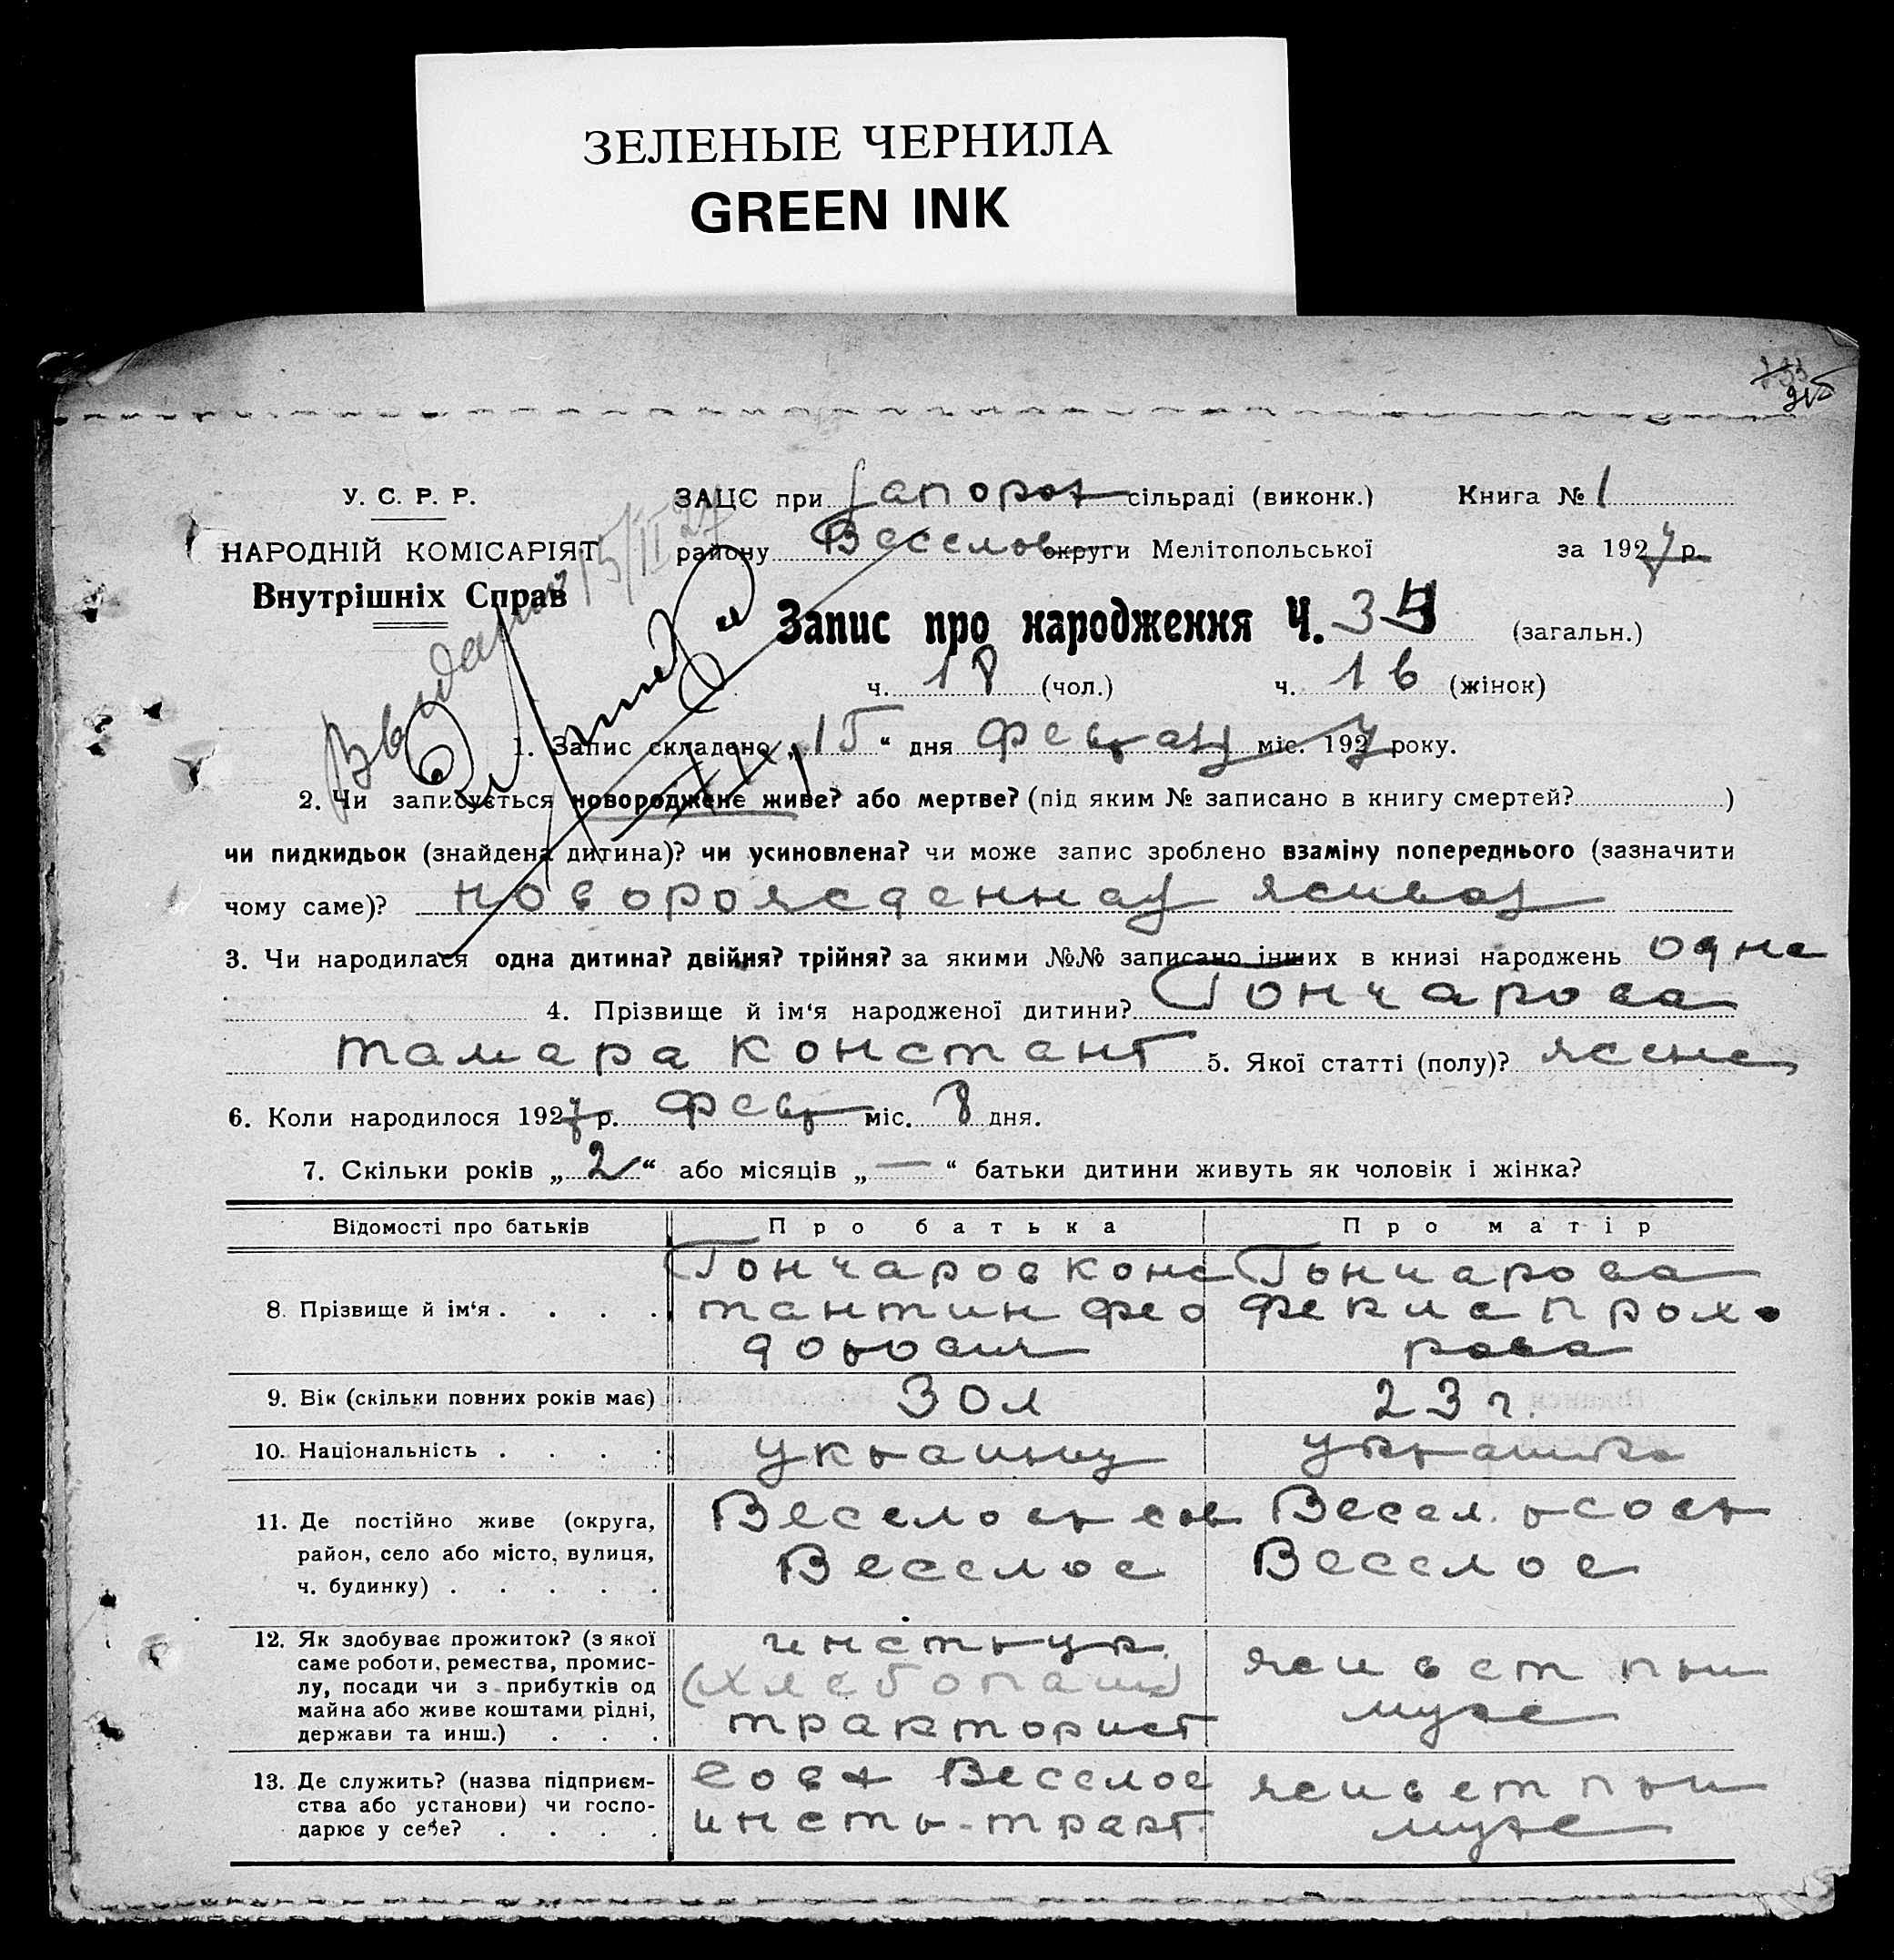 ЗЕЛЕНЫЕ ЧЕРНИЛА
GREEN INK
У. С. Р. Р.
НАРОДНІЙ КОМІСАРІЯТ
Внутрішніх Справ
15/II 27
ЗАЦС при Запорож сільраді (виконк.) Книга № 1
району Веселов округи Мелітопольської за 1927 р.
Запис про народження Ч. 35 (загальн.)
ч. 18 (чол.) ч. 16 (жінок)
1. Запис складено „15“ дня Февраля міс. 1927 року.
2. Чи записується новороджене живе? або мертве? (під яким № записано в книгу смертей? )
чи пидкидьок (знайдена дитина)? чи усиновлена? чи може запис зроблено взаміну попереднього (зазначити
чому саме)? новорожденная живая
3. Чи народилася одна дитина? двійня? трійня? за якими №№ записано інших в книзі народжень одна
4. Прізвище й ім‘я народженої дитини? Гончарова
тамара констант 5. Якої статті (полу)? женс
6. Коли народилося 1927 р. Февр міс. 8 дня.
7. Скільки років „2“ або місяців „—“ батьки дитини живуть як чоловік і жінка?
Відомості про батьків Про батька Про матір
8. Прізвище й ім‘я . . . .
Гончаров конс
тантин Фео
дорович
Гончарова
Фекла прохо
рова
9. Вік (скільки повних років має) 30 л 23 г.
10. Національність . . . . украинц украинка
11. Де постійно живе (округа,
район, село або місто, вулиця,
ч. будинку) . . . . .
Веселовр сов
Веселое
Весел.
Веселое
12. Як здобуває прожиток? (з якої
саме роботи, ремества, промис-
лу, посади чи з прибутків од
майна або живе коштами рідні,
держави та инш.) . . .
инструк.
(хлебопаш)
тракторист
живет при
муже
13. Де служить? (назва підприєм-
ства або установи) чи госпо-
дарює у себе? . . . .
совх Веселое
инстр-тракт.
живет при
муже